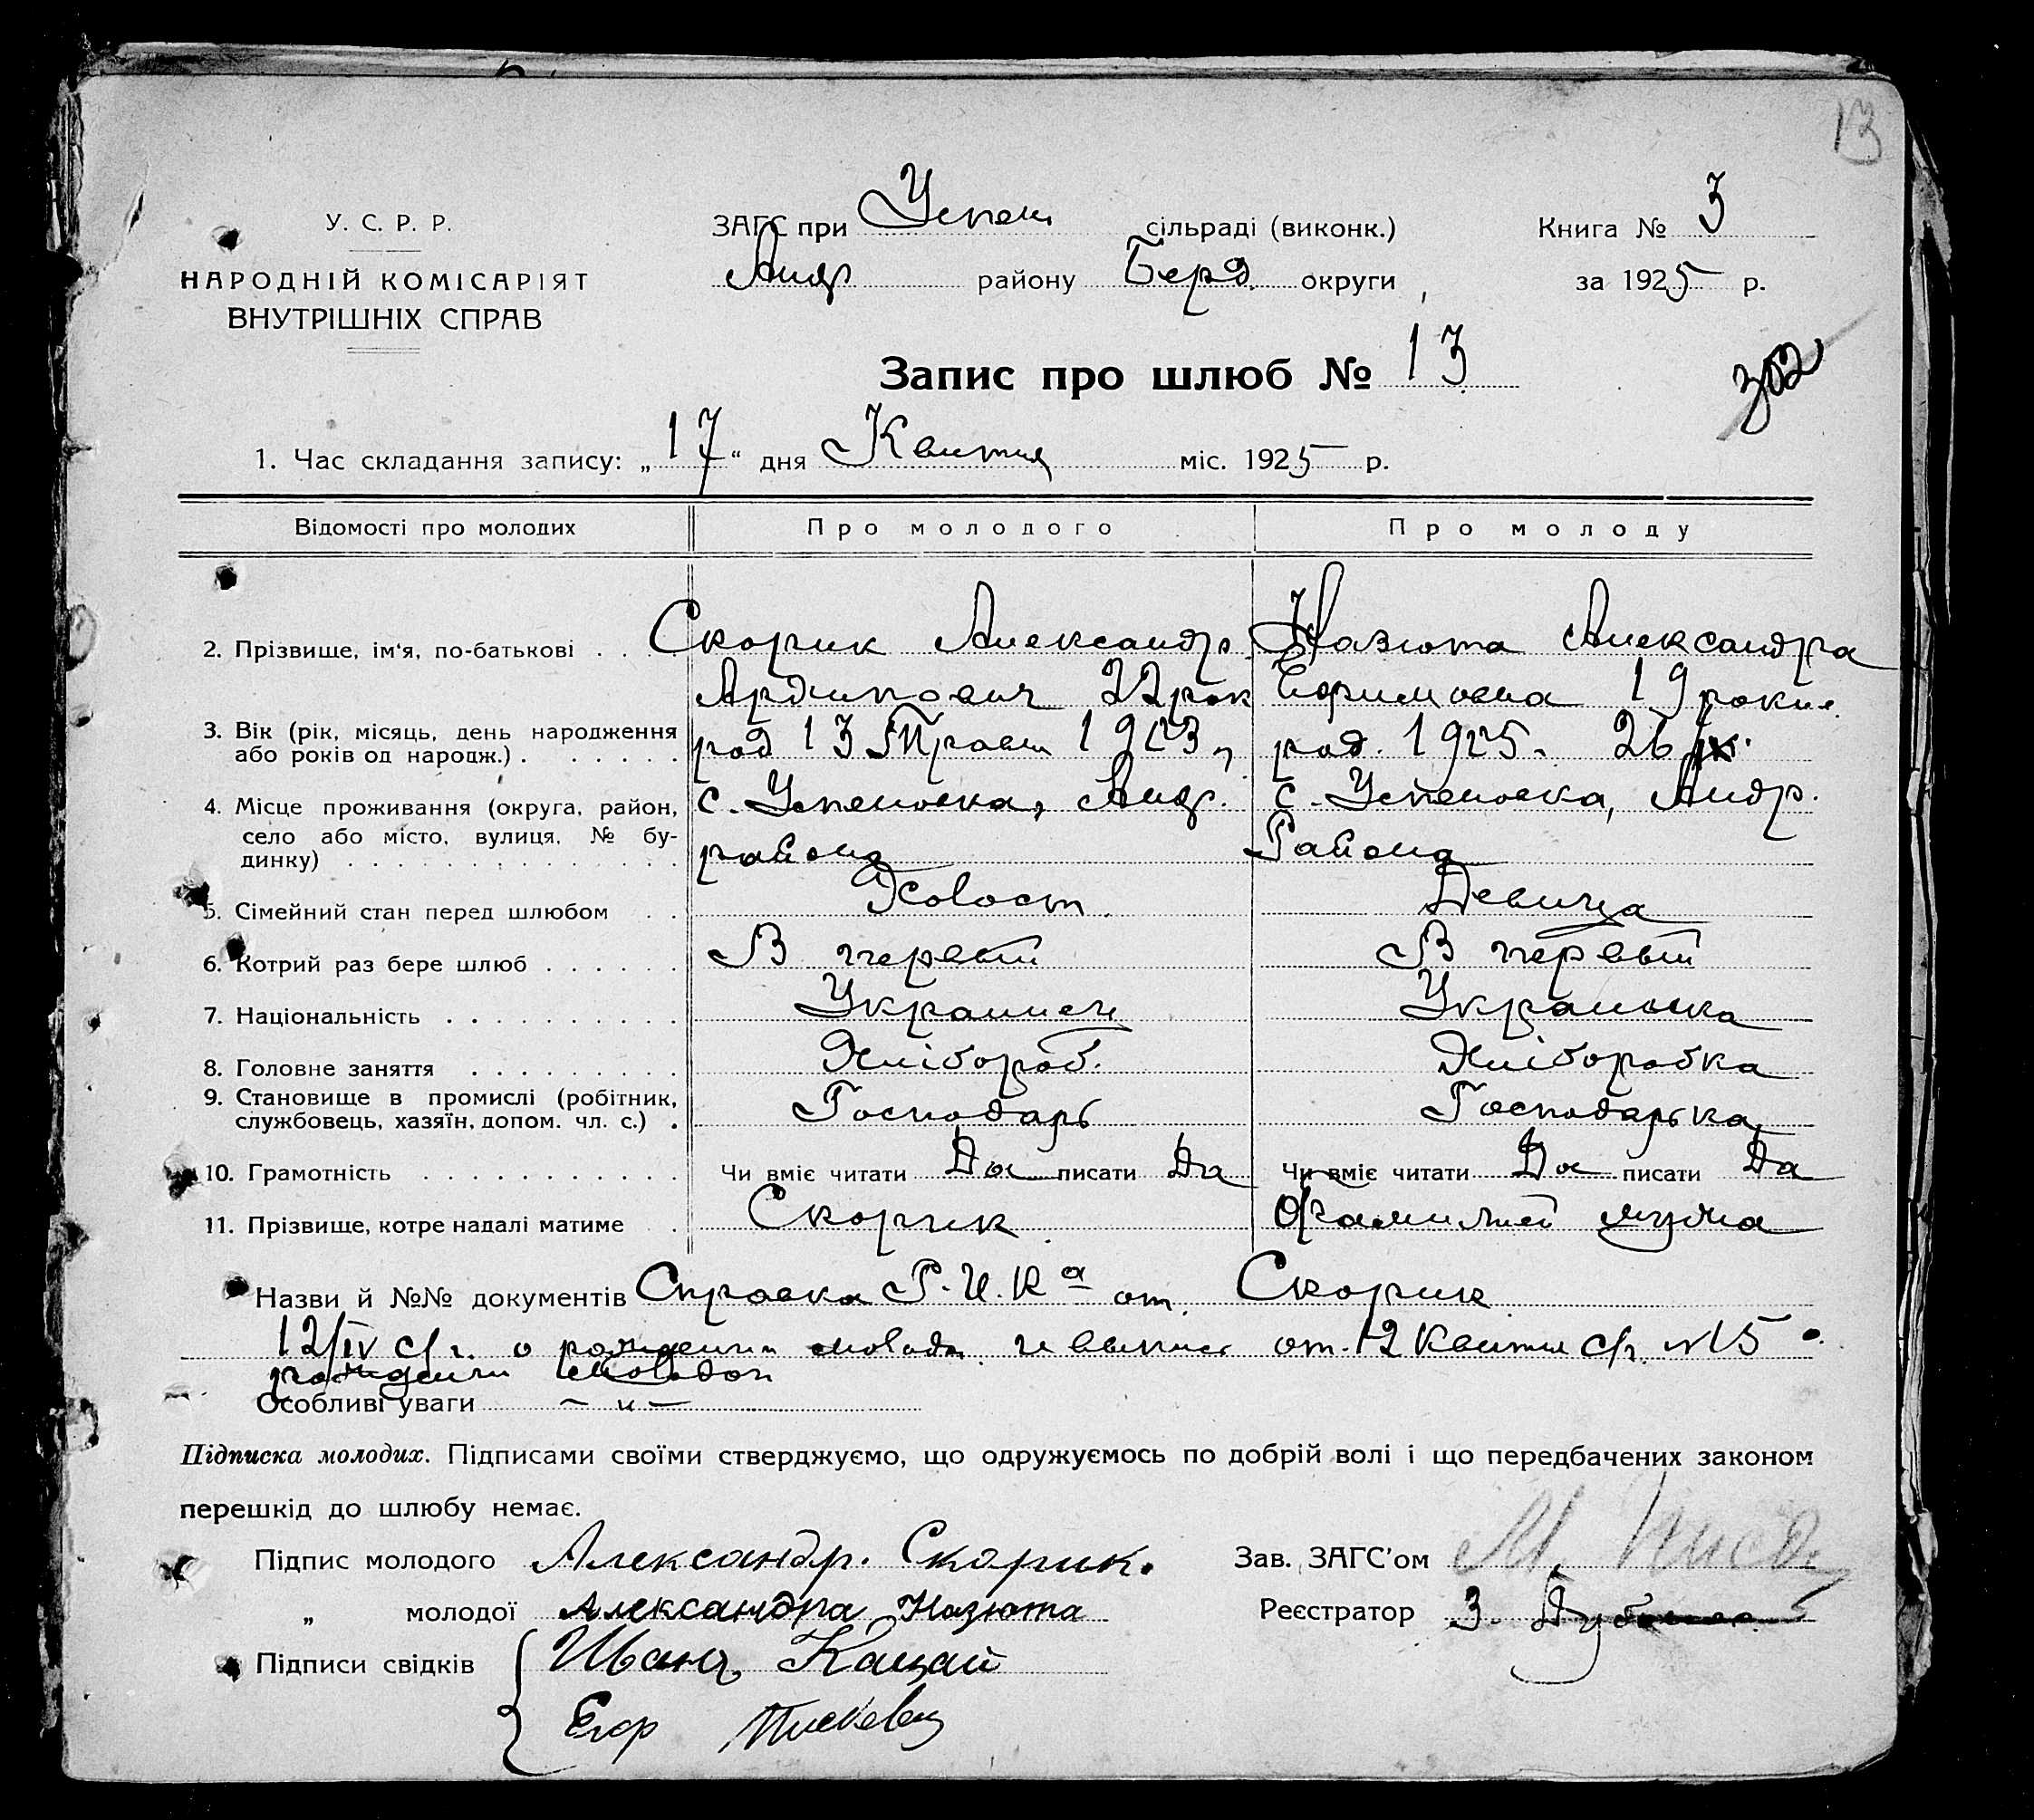 13
У. С. Р. Р.
НАРОДНІЙ КОМІСАРІЯТ
ВНУТРІШНІХ СПРАВ
ЗАГС при Успен сільраді (виконк.)
Андр району Берд. округи
Книга № 3
за 1925 р.
Запис про шлюб № 13
302
1. Час складання запису: „17“ дня Квитня міс. 1925 р.
Відомості про молодих Про молодого Про молоду
2. Прізвище, ім‘я, по-батькові . . . Скорик Александр Назюта Александра
22 рок Ефимовна 19 рокив
3. Вік (рік, місяць, день народження
або років од народж.) . . . . . . род 13 Травн род. 26
4. Місце проживання (округа, район,
село або місто, вулиця, № бу-
динку) . . . . . . . . . . . . . .
с. Успеновка, Андр. с. Успеновка, Андр.
района Района
5. Сімейний стан перед шлюбом . . Холост. Девица
6. Котрий раз бере шлюб . . . . . . В первый В первый
7. Національність . . . . . . . . . . Украинец Украинка
8. Головне заняття . . . . . . . . . Хлібороб. Хліборобка
9. Становище в промислі (робітник,
службовець, хазяїн, допом. чл. с.) . Господарь Господарька
10. Грамотність . . . . . . . . . . . Чи вміє читати Да писати Да Чи вміє читати Да писати Да
11. Прізвище, котре надалі матиме . Скорик Фамилией мужа
Скорик
Назви й №№ документів Справка Р.И.Ка от
12/IV с/г. о рождении молодог. и выпись от 12 Квитня с/г. №15 о
рождении молодой
Особливі уваги — „ —
Підписка молодих. Підписами своїми стверджуємо, що одружуємось по добрій волі і що передбачених законом
перешкід до шлюбу немає.
Підпис молодого Александр. Скорик.
„ молодої Александра Назюта
Підписи свідків Иванъ Кащай
Егор
Зав. ЗАГС’ом М.
Реєстратор З.